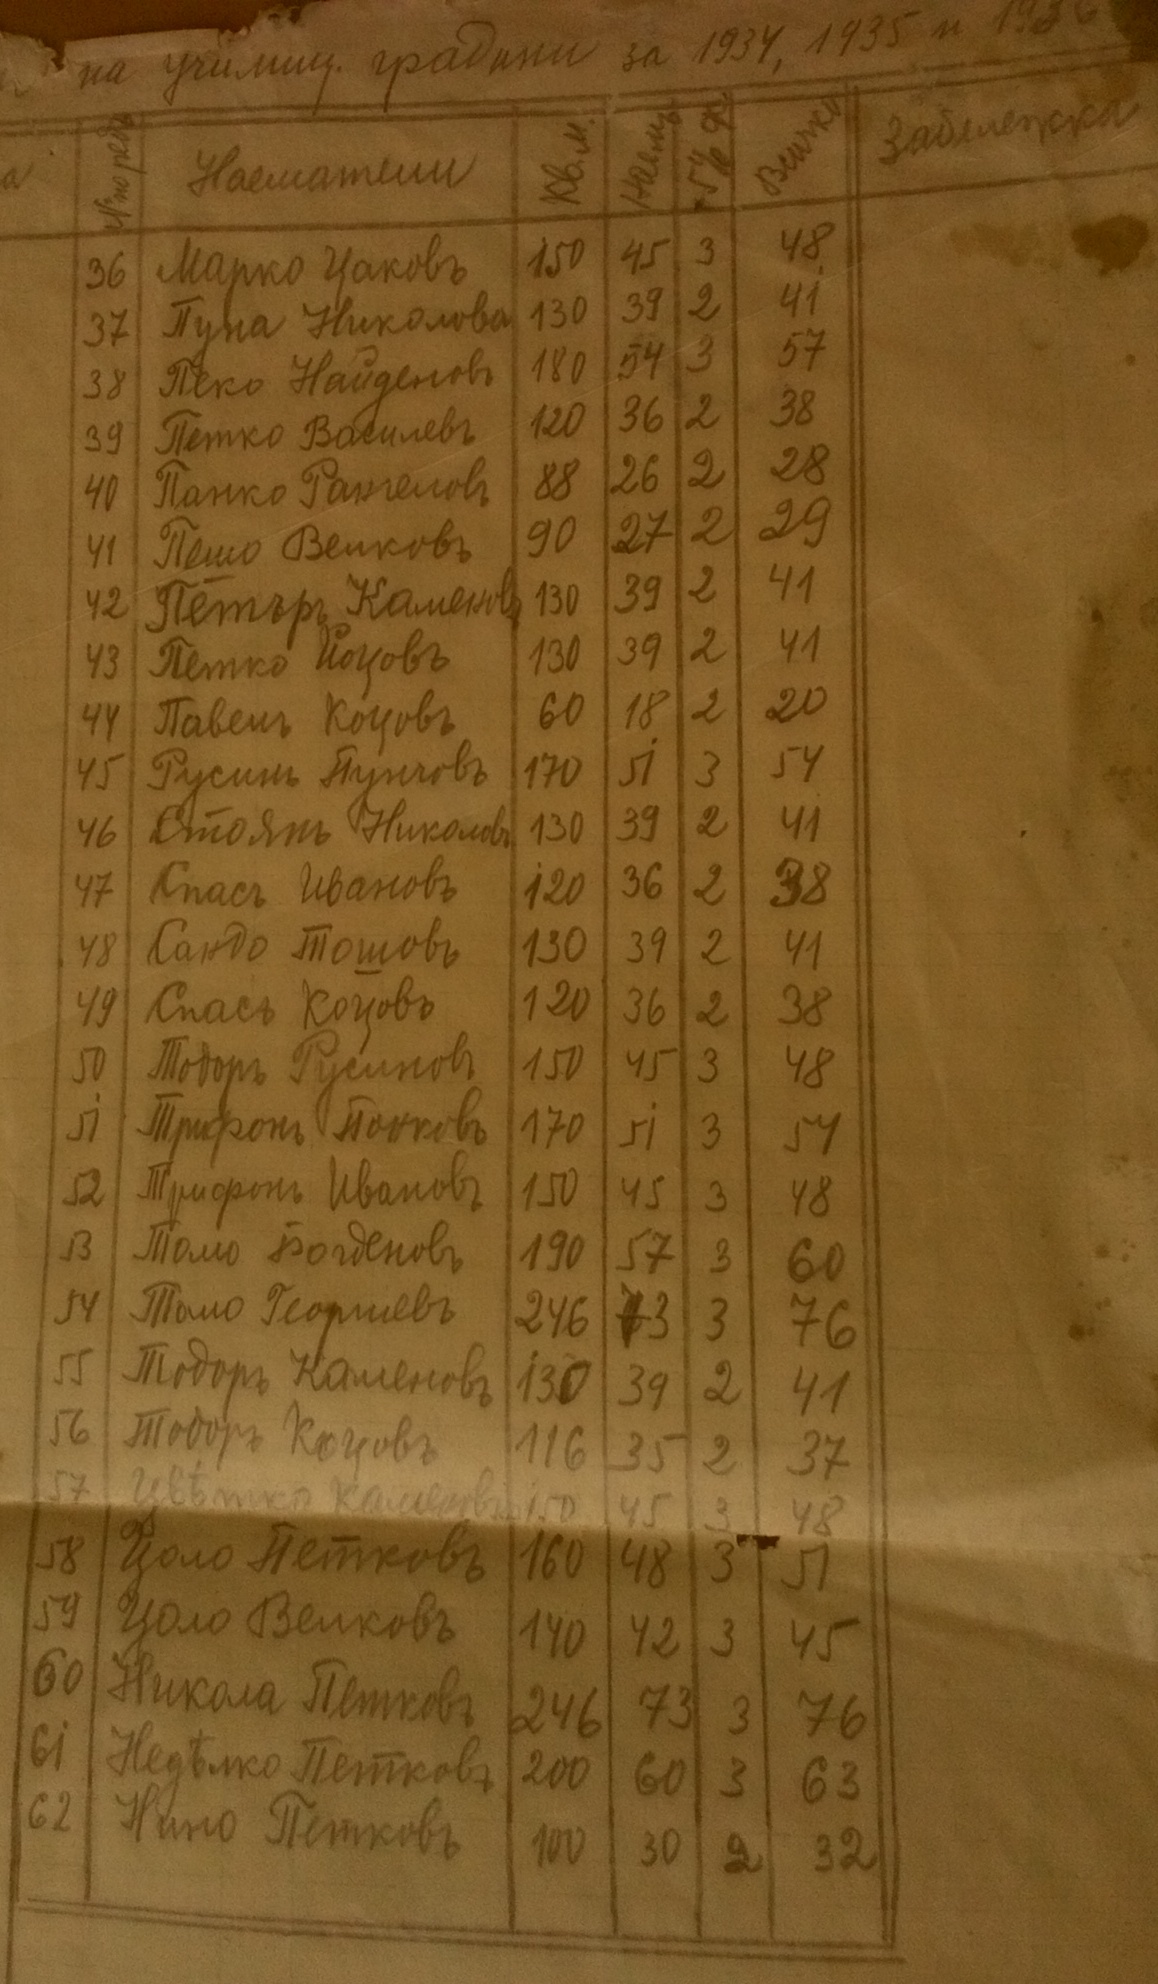 на училищ. градини за 1934, 1935 и 1936
№ по редъ Наематели Кв.м. Наемъ 5% ф. Всичко Забележка
36 Марко Цаковъ 150 45 3 48
37 Пуна Николова 130 39 2 41
38 Пеко Найденовъ 180 54 3 57
39 Петко Василевъ 120 36 2 38
40 Панко Рангеловъ 88 26 2 28
41 Пешо Велковъ 90 27 2 29
42 Петъръ Каменовъ 130 39 2 41
43 Петко Йоцовъ 130 39 2 41
44 Павелъ Коцовъ 60 18 2 20
45 Русинъ Пунчовъ 170 51 3 54
46 Стоянъ Николовъ 130 39 2 41
47 Спасъ Ивановъ 120 36 2 38
48 Сандо Тошовъ 130 39 2 41
49 Спасъ Коцовъ 120 36 2 38
50 Тодоръ Русиновъ 150 45 3 48
51 Трифонъ Понковъ 170 51 3 54
52 Трифонъ Ивановъ 150 45 3 48
53 Томо Богденовъ 190 57 3 60
54 Томо Георгиевъ 246 73 3 76
55 Тодоръ Каменовъ 130 39 2 41
56 Тодоръ Коцовъ 116 35 2 37
57 Цвѣтко Каменовъ 150 45 3 48
58 Цоло Петковъ 160 48 3 51
59 Цоло Велковъ 140 42 3 45
60 Никола Петковъ 246 73 3 76
61 Недѣлко Петковъ 200 60 3 63
62 Нино Петковъ 100 30 2 32